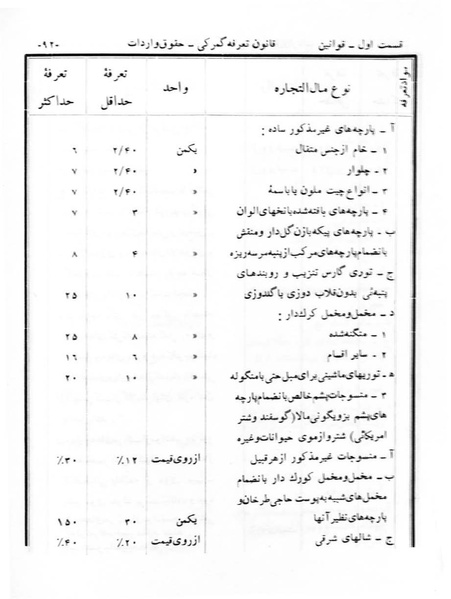 قسمت اول ــ قوانین قانون تعرفه گمرکی ــ حقوق واردات -۹۲-
مواد تعرفه نوع مال‌التجاره واحد تعرفهٔ حداقل تعرفهٔ حداکثر
آ ــ پارچه‌های غیرمذکور ساده :
۱ ــ خام ازجنس متقال یکمن ۲/۴۰ ۶
۲ ــ چلوار » ۲/۴۰ ۷
۳ ــ انواع چیت ملون یا باسمهٔ » ۲/۴۰ ۷
۴ ــ پارچه‌های بافته‌شده با نخهای الوان » ۳ ۷
ب ــ پارچه‌های پیکه بازن گل‌دار و منقش
بانضمام پارچه‌های مرکب ازپنبه مرسه‌ریزه » ۴ ۸
ج ــ توری گارس تنزیب و روبندهای
پنبه‌ئی بدون قلاب دوزی یا گلدوزی » ۱۰ ۲۵
د ــ مخمل و مخمل کرک‌دار :
۱ ــ منگنه‌شده » ۸ ۲۵
۲ ــ سایر اقسام » ۶ ۱۶
ه ــ توریهای ماشینی برای مبل حتی با منگوله » ۱۰ ۲۰
۳ ــ منسوجات پشم خالص بانضمام پارچه
های پشم بزویگونی مالا (گوسفند وشتر
امریکائی) شتر و ازموی حیوانات وغیره
آ ــ منسوجات غیر مذکور ازهرقبیل ازروی قیمت ۱۲٪ ۳۰٪
ب ــ مخمل و مخمل کورک دار بانضمام
مخمل‌های شبیه به پوست حاجی طرخان و
پارچه‌های نظیر آنها یکمن ۳۰ ۱۵۰
ج ــ شالهای شرقی ازروی قیمت ۲۰٪ ۴۰٪